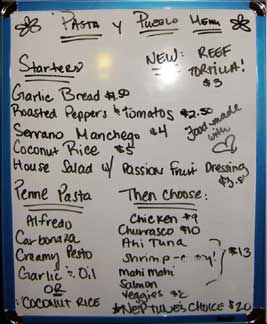 Pasta y Pueblo Menu
NEW: REEF
TORTILLA!
$3
Starters
Garlic Bread $4.50
Roasted Peppers & Tomatos $2.50
Serrano Manchego $4
Coconut Rice $5
House Salad w/ Passion Fruit Dressing
$3.50
food made
with
Penne Pasta
Alfredo
Carbonara
Creamy Pesto
Garlic & Oil
OR
COCONUT RICE
Then Choose:
Chicken $9
Churrasco $10
Ahi Tuna
Shrimp
Mahi Mahi
Salmon
$13
Veggies
*NEPTUNE'S CHOICE $20